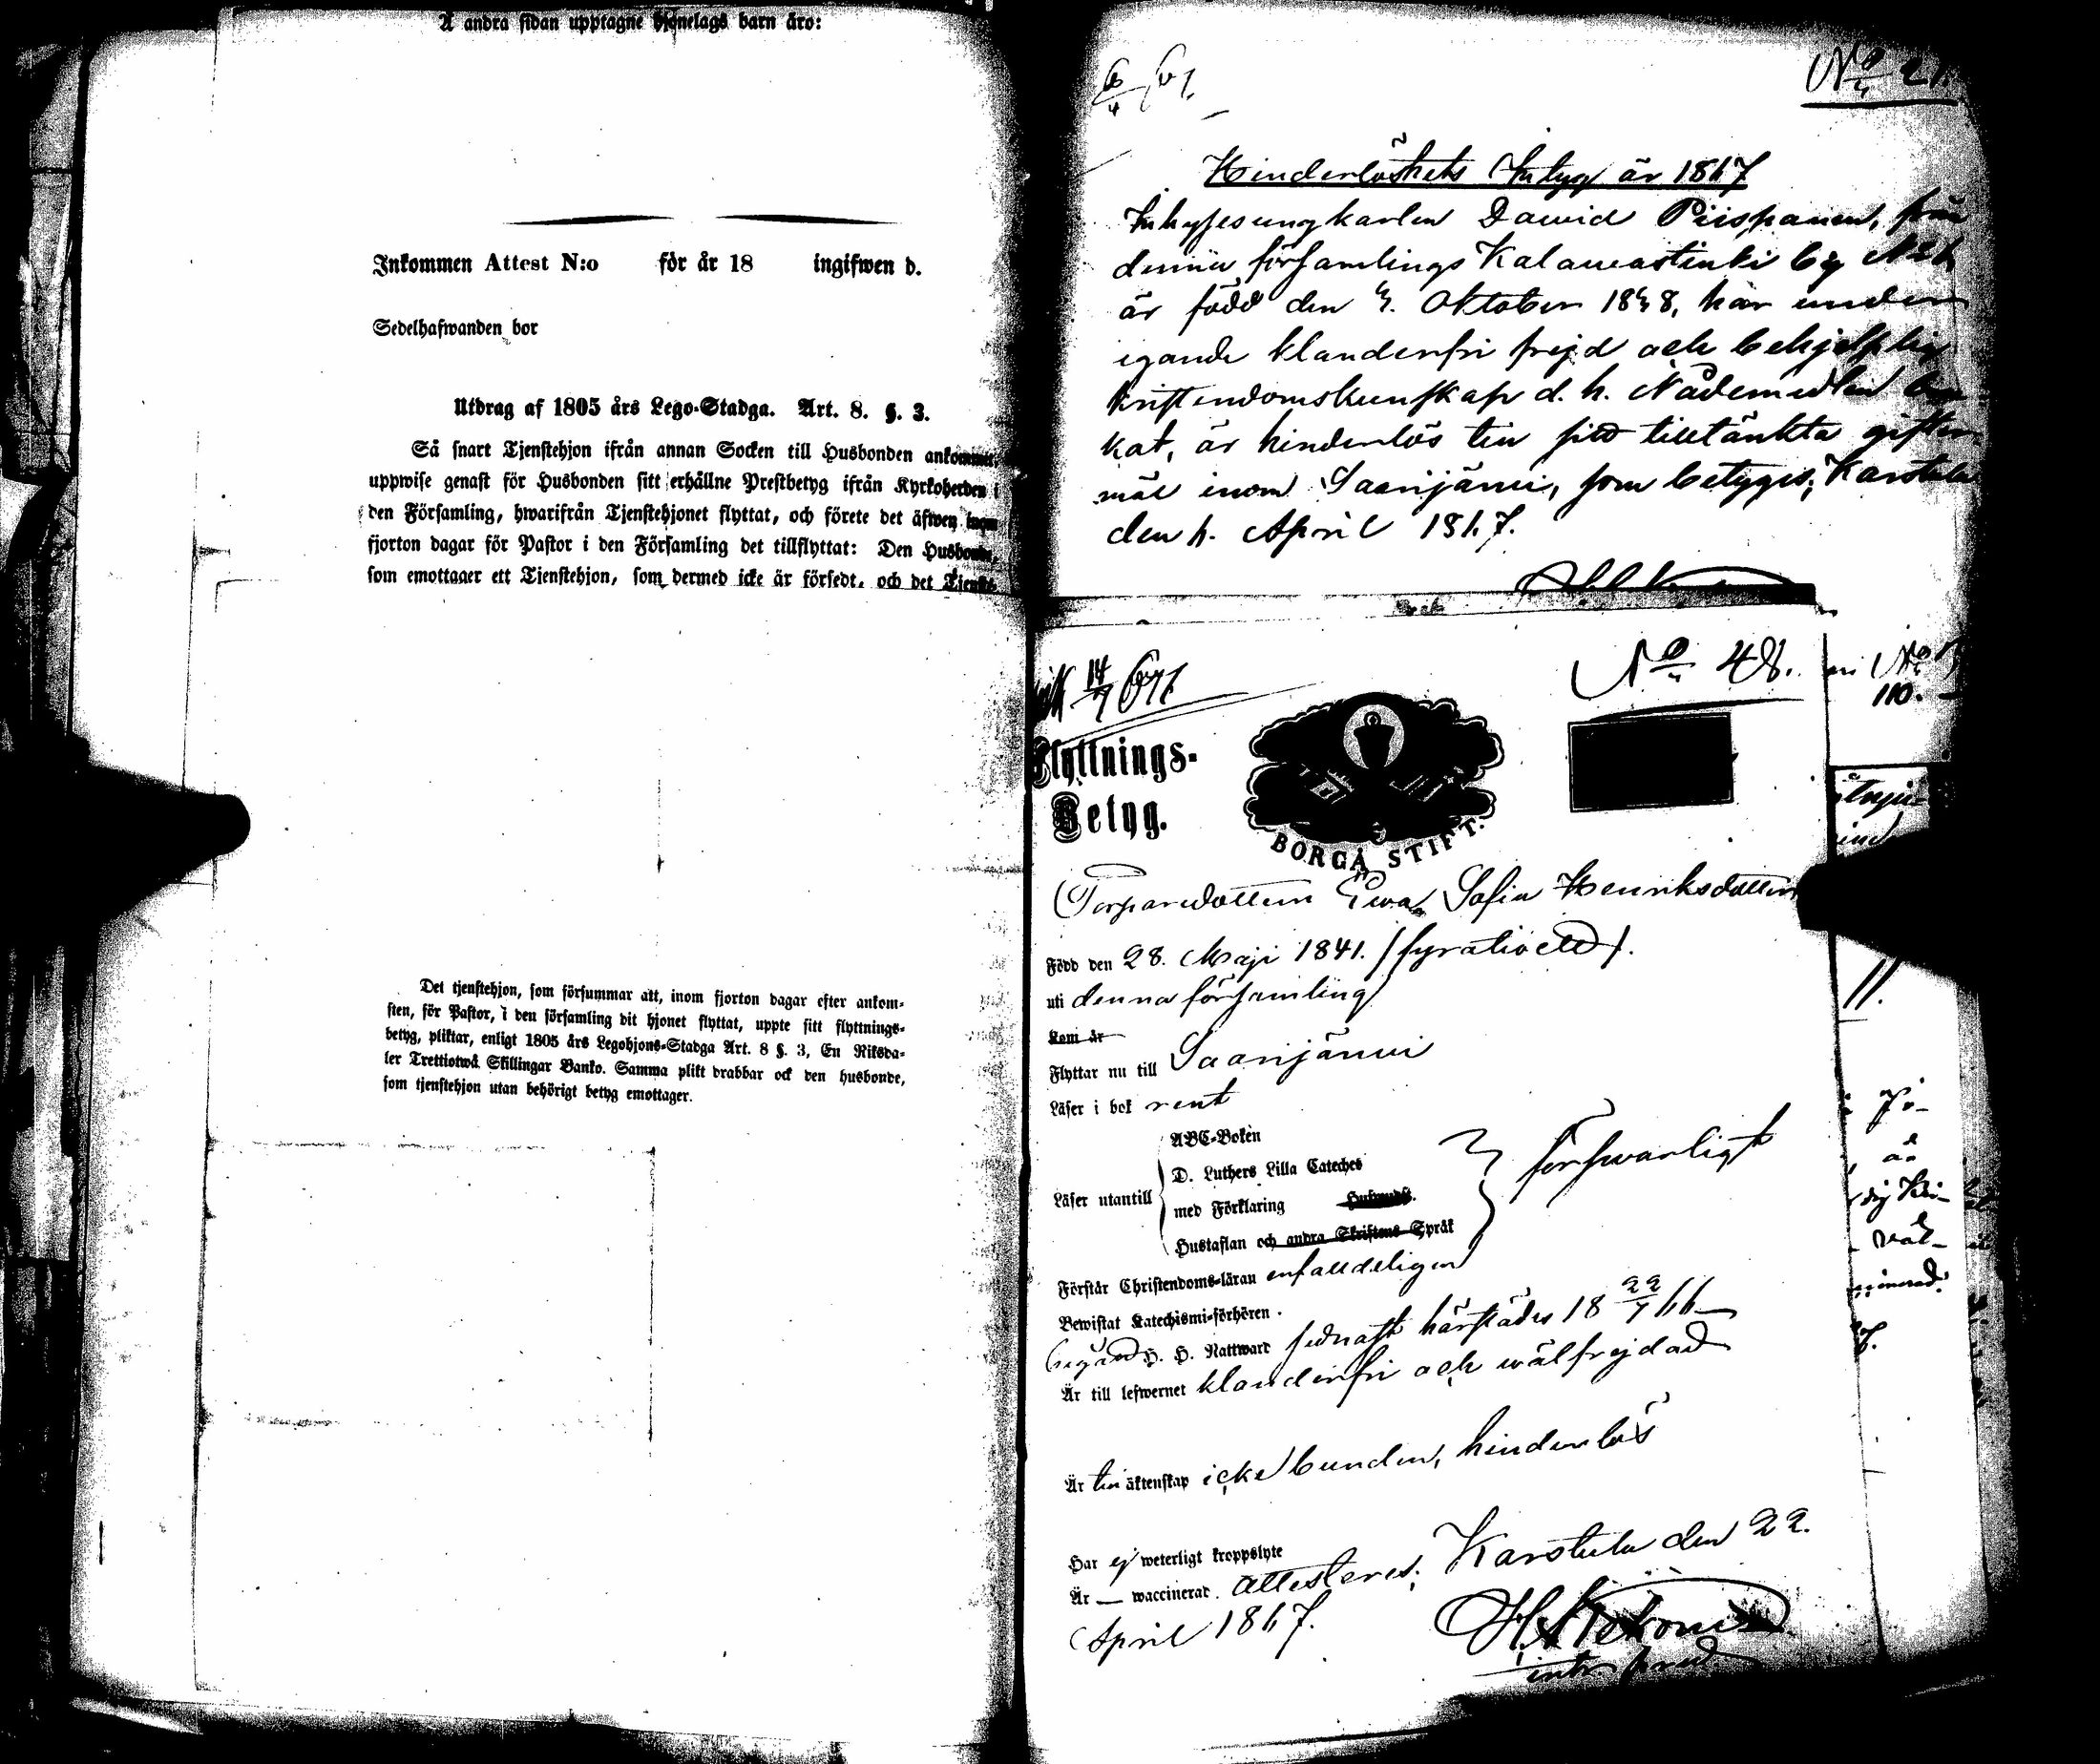 Å andra sidan upptagne hjonelags barn äro:
Inkommen Attest N:o för år 18 ingifwen d.
Sedelhafwanden bor
Utdrag af 1805 års Lego-Stadga. Art. 8. §. 3.
Så snart Tjenstehjon ifrån annan Socken till Husbonden ankommer,
uppwise genast för Husbonden sitt erhållne Prestbetyg ifrån Kyrkoherden i
den Församling, hwarifrån Tjenstehjonet flyttat, och förete det äfwen inom
fjorton dagar för Pastor i den Församling det tillflyttat: Den Husbonde,
som emottager ett Tjenstehjon, som dermed icke är försedt, och det Tjenste-
Det tjenstehjon, som försummar att, inom fjorton dagar efter ankom-
sten, för Pastor, i den församling dit hjonet flyttat, uppte sitt flyttnings-
betyg, pliktar, enligt 1805 års Legohjons-Stadga Art. 8 §. 3, En Riksda-
ler Trettiotwå Skillingar Banko. Samma plikt drabbar ock den husbonde,
som tjenstehjon utan behörigt betyg emottager.
6/4 67.
No 21.
Hinderlöshets Intyg år 1867
Inhysesungkarlen Dawid Piispanen, från
denna församlings Kalmari
är född den Oktober har under
egande klanderfri frejd och behjelplig
kristendomskunskap d. h. Nådemedlen
kat, är hinderlös till sitt tilltänkta gifter-
mål inom Saarijärwi, som betygas; Karstula
den 6. April 1867.
14/7 67
No 48.
Flyttnings-
Betyg.
BORGÅ STIFT.
Torparedottern Ewa Sofia Henriksdotter
Född den 28. Maji 1841. /fyratioett/.
uti denna församling
Kom år
Flyttar nu till Saarijärwi
Läser i bok rent
ABC-Boken
D. Luthers Lilla Cateches
Läser utantill med Förklaring försvarligt
Hustaflan och andra Skriftens Språk
Förstår Christendoms-läran enfaldeligen
Bewistat Katechismi-förhören.
Begådt H. H. Nattward sednast härstädes 18 22/7 66
Är till lefwernet klanderfri och wälfrejdad
Är till äktenskap icke bunden, hinderlös
Har ej weterligt kroppslyte
Är — waccinerat. Attesteres; Karstula den 22.
April 1867.